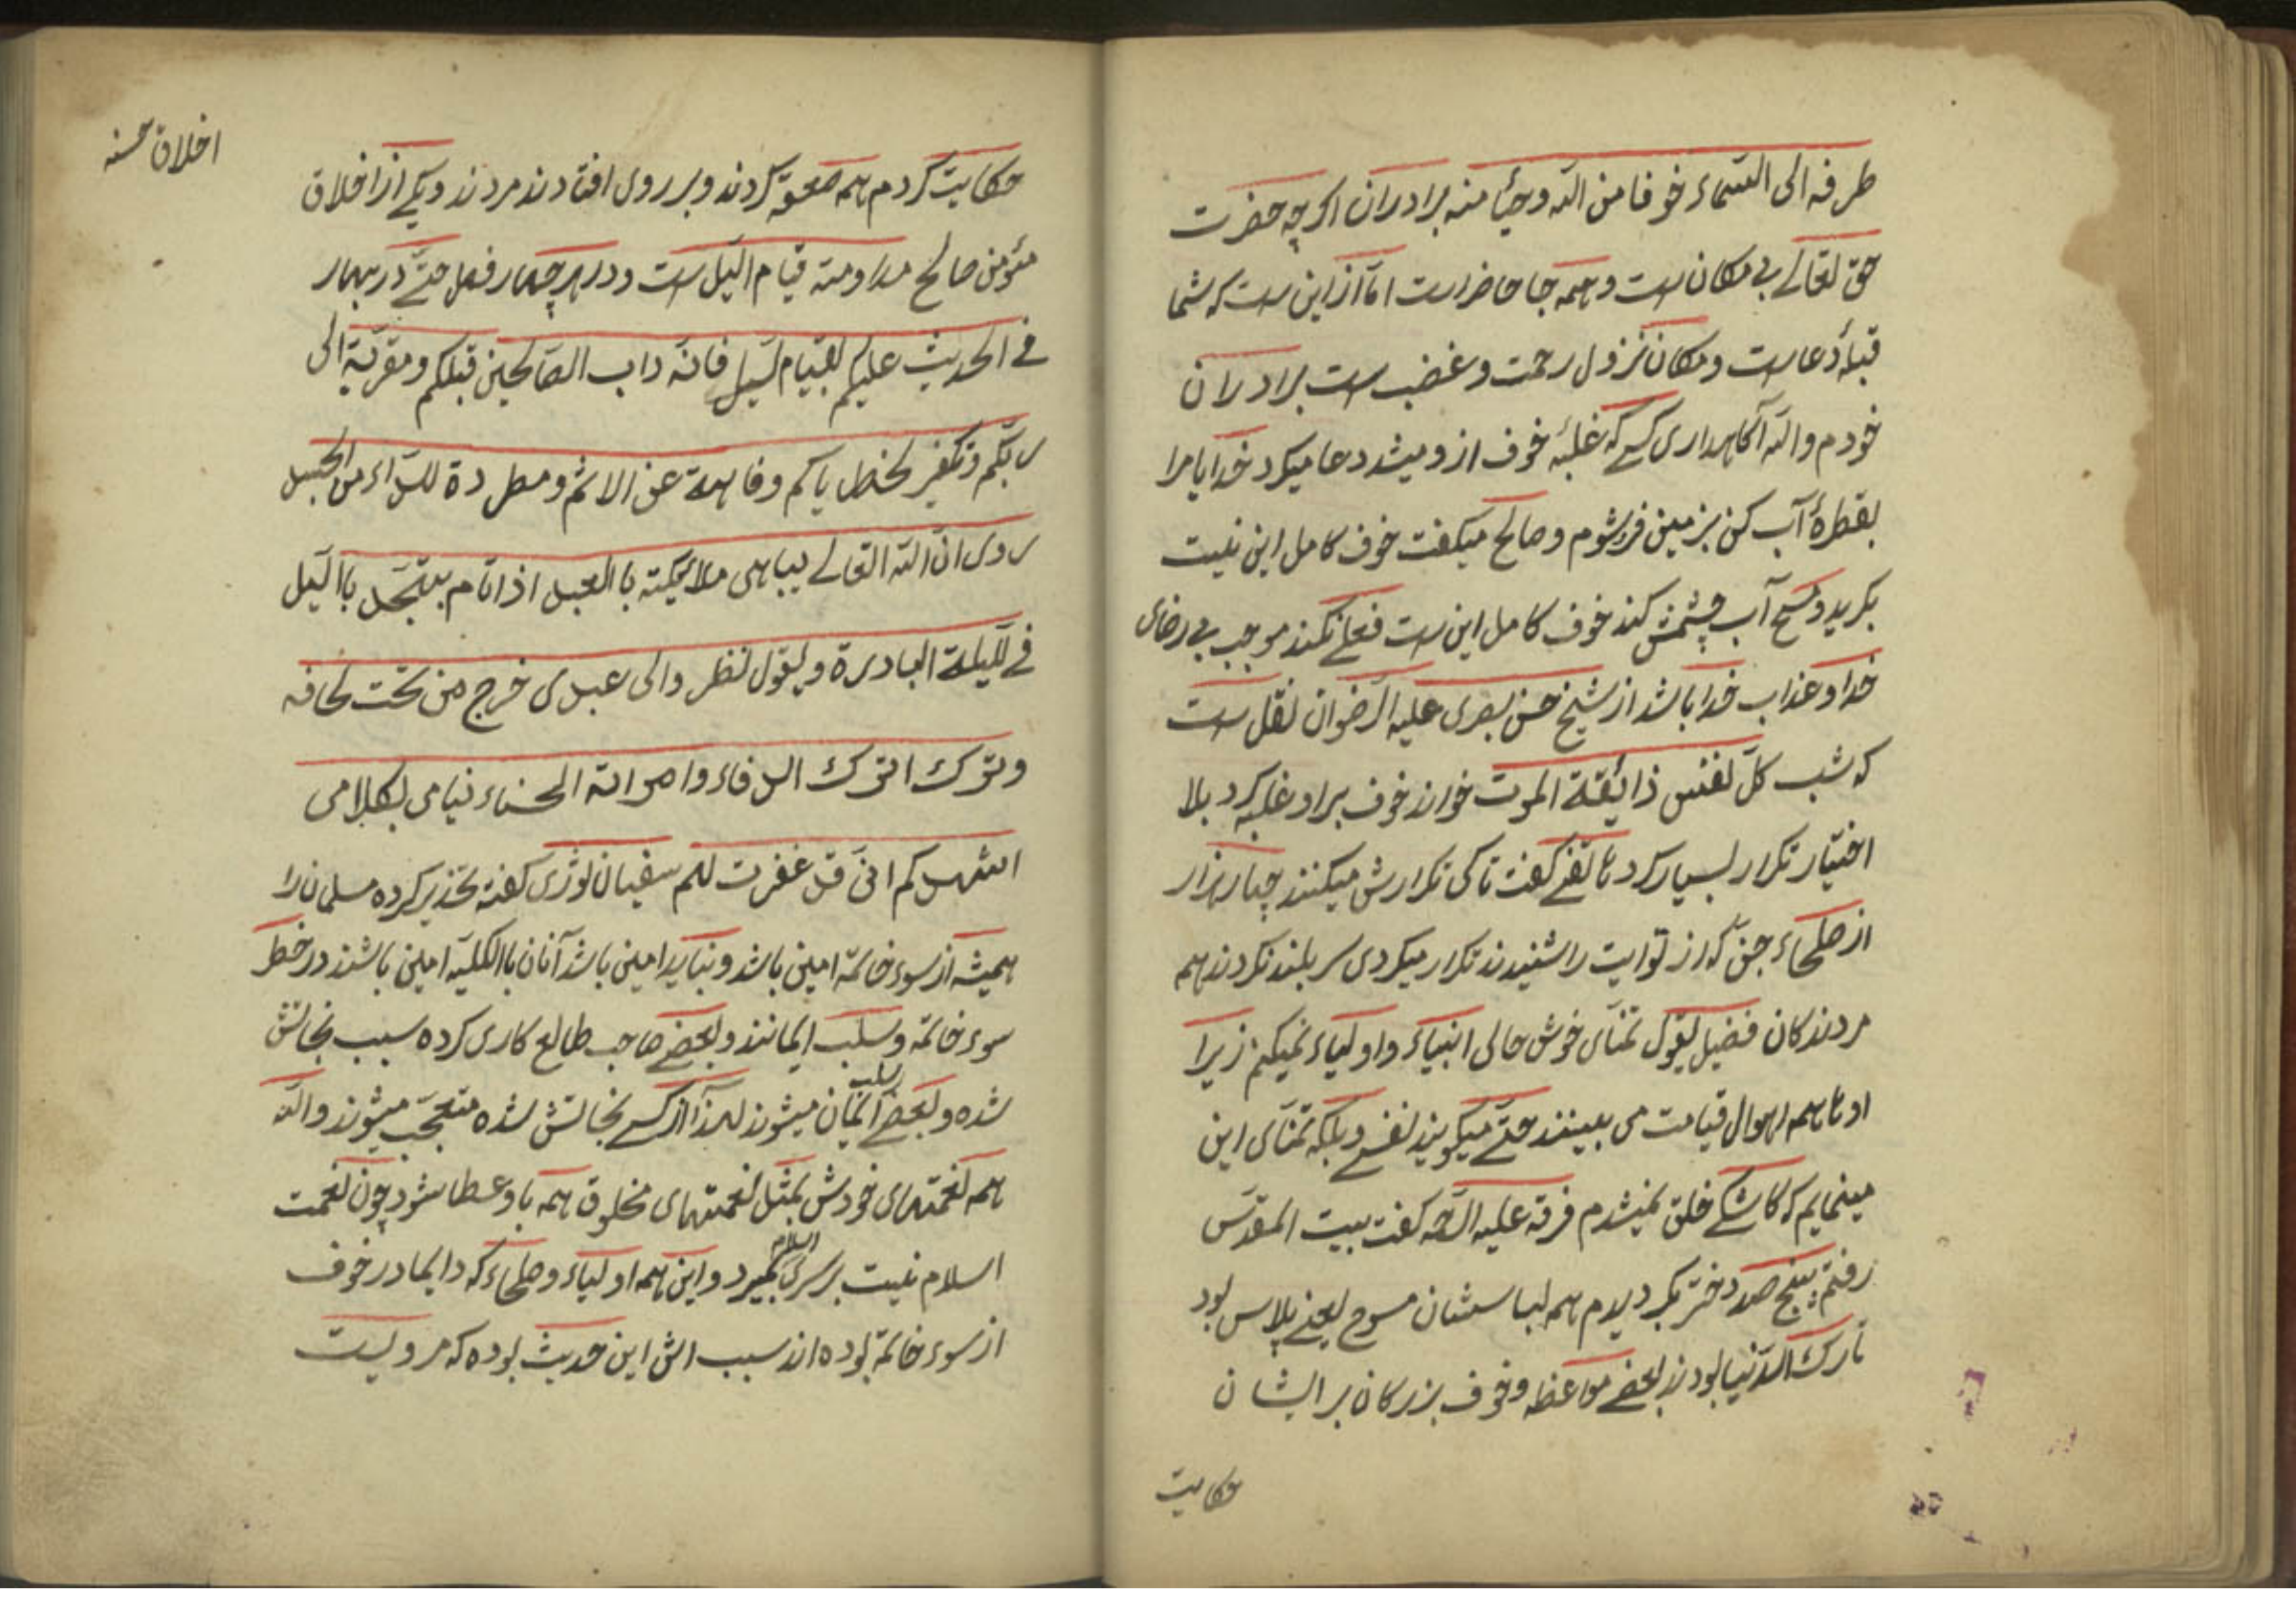 طرفه الی السّماء خوفا من الله وحیأ منه برادران اکرچه حضرت
حق تعالے بی مکان است و همه جا حاضر است امّا از این است که شما
قبلهٔ دعاست و مکان نزول رحمت و غضب است برادران
خودم والله آکاهداری کسے که غلبهٔ خوف از و میشد دعا میکرد خدایا مرا
بقطرهٔ آب کن بزمین فرو شوم و صالح میکفت خوف کامل این نیست
بکرید و مسح آب چشمش کند خوف کامل این است فعلے نکند موجب بی رضای
خدا و عذاب خدا باشد از شیخ حسن بصری علیه الرضوان نقل است
که شب کلّ نفس ذائقة الموت خواند خوف بر او غلبه کرد بلا
اختیار تکرار بسیار کرد هاتفے کفت تا کی تکرارش میکنند چهار هزار
از صلحاء جن که از تو ایت را شنیدند تکرار میکردی سر بلند نکردند همه
مردندکان فضیل یقول تمنّای خوش حالی انبیاء و اولیاء نمیکنم زیرا
اوها همه اهوال قیامت می بینند حتّے میکویند نفسے و بلکه تمنّای این
مینمایم که کاشکے خلق نمیشدم فرقه علیه الرحمه کفت بیت المقدّس
رفتم پنج صد دختر بکر دیدم همه لباسشان مسوح یعنے پلاس بود
تارک الدّنیا بودند بعضے مواعظه و خوف بزرکان بر ایشان
حکایت
اخلاق حسنه
حکایت کردم همه صعقه کردند و بر روی افتادند مردند و یکے از اخلاق
مئومن صالح مداومته قیام الیل است و در هر چهار فصل حتّے در بهار
فے الحدیث علیکم بقیام لیل فانّه داب الصّالحین قبلکم و مقربّة الی
ربّکم و تکفیر لخطایاکم و فاهیة عن الاثم و مطردة للدّاء من الجسد
روی انّ الله التعالے یباهی ملائکته باالعبد اذا قام بتهجّد باالیل
فے للّیلة الباردة و یقول نظروا الی عبدی خرج من تحت لحافه
و ترک الترک الدفاء و امراته الحسناء نیامی بکلامی
اشهدکم انّی قد غفرت لهم سفیان ثوری کفته تحذیر کرده مسلمان را
همیشه از سوء خاتمة امین باشد و نباید امین باشد آنان باالکلیّه امین باشند در خطر
سوء خاتمه و سلب ایمانند و بعضے صاحب طالع کاری کرده سبب نجاتش
شده و بعضے سلب ایمان میشوند لهذا از کسے نجاتش شده متعجّب میشوند والله
همه نعمتهای خودش بمثل نعمتهای مخلوق همه باو عطا شود چون نعمت
اسلام نیست بر سری اسلام بمیرد و این همه اولیاء و صلحاء که دایما در خوف
از سوء خاتمة بوده اند سبب اش این حدیث بوده که مرویست